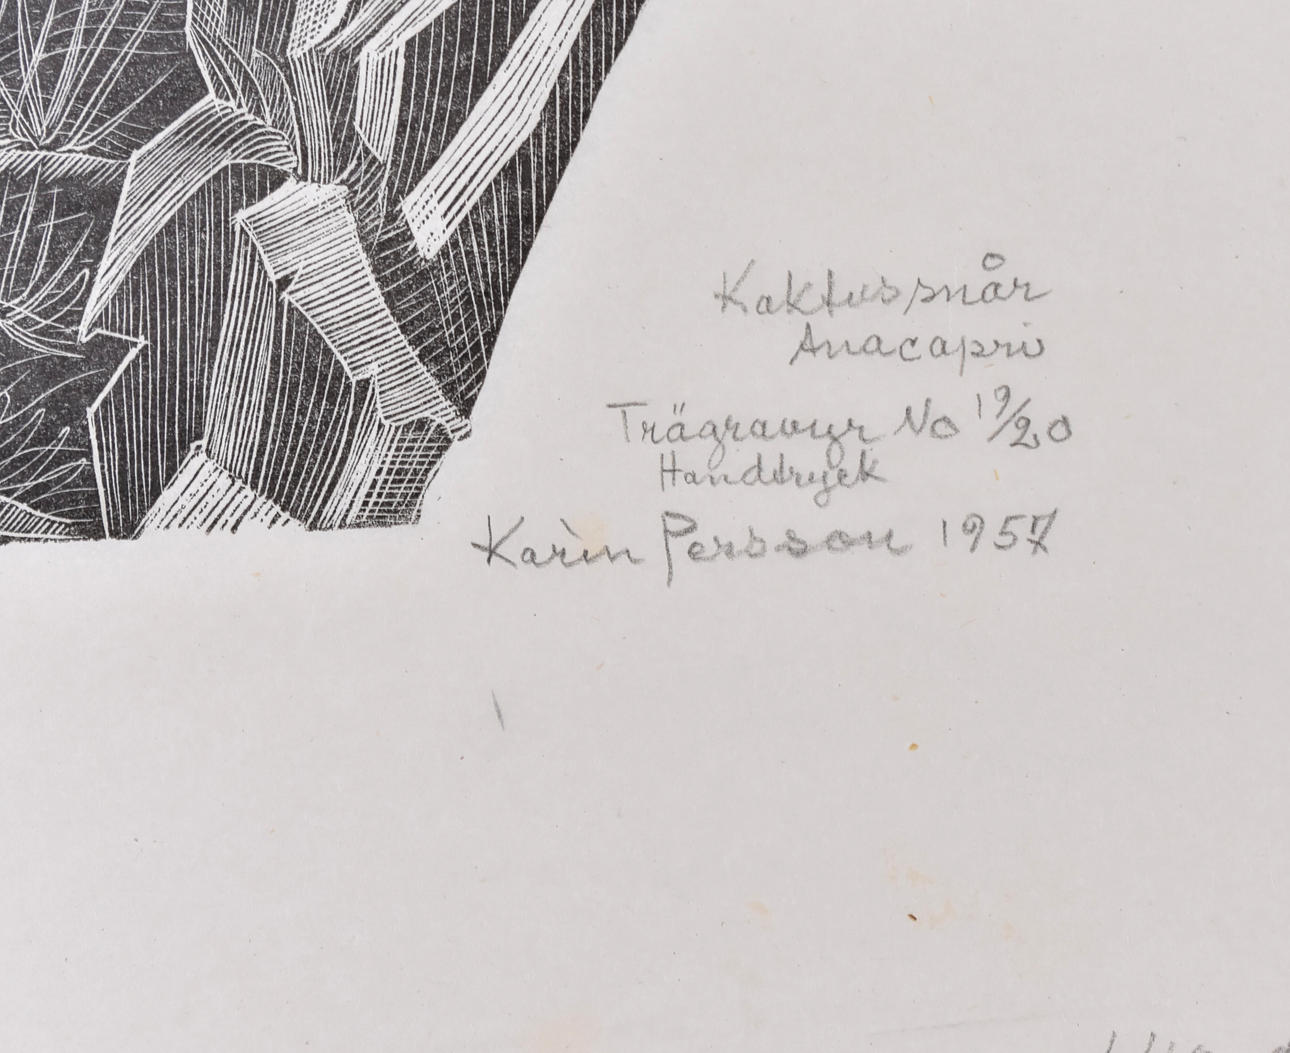 Kaktussnår
Anacapri
Trägravyr No 19/20
Handtryck
Karin Persson 1957